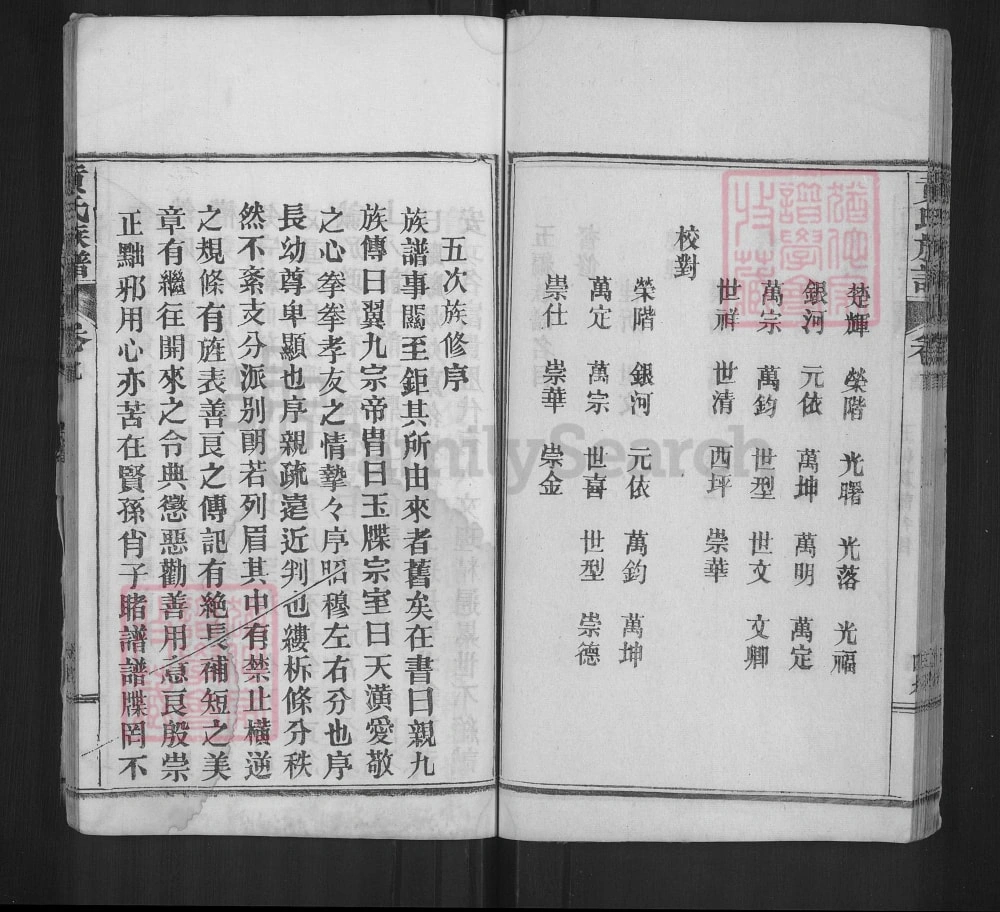 黃氏族譜
楚輝 榮階 光曙 光落 光福
銀河 元依 萬坤 萬明 萬定
萬宗 萬鈞 世型 世文 文卿
世祥 世清 西坪 崇華
校對
榮階 銀河 元依 萬鈞 萬坤
萬定 萬宗 世喜 世型 崇德
崇仕 崇華 崇金
五次族修序
族譜事關至鉅其所由來者舊矣在書曰親九
族傳曰翼九宗帝冑曰玉牒宗室曰天潢愛敬
之心拳拳孝友之情摯々序昭穆左右分也序
長幼尊卑顯也序親疏遠近判也縷析條分秩
然不紊支分派別朗若列眉其中有禁止橫逆
之規條有旌表善良之傳記有絶長補短之美
章有繼往開來之令典懲惡勸善用意良殷崇
正黜邪用心亦苦在賢孫肖子睹譜譜牒罔不
黃氏族譜
FamilySearch